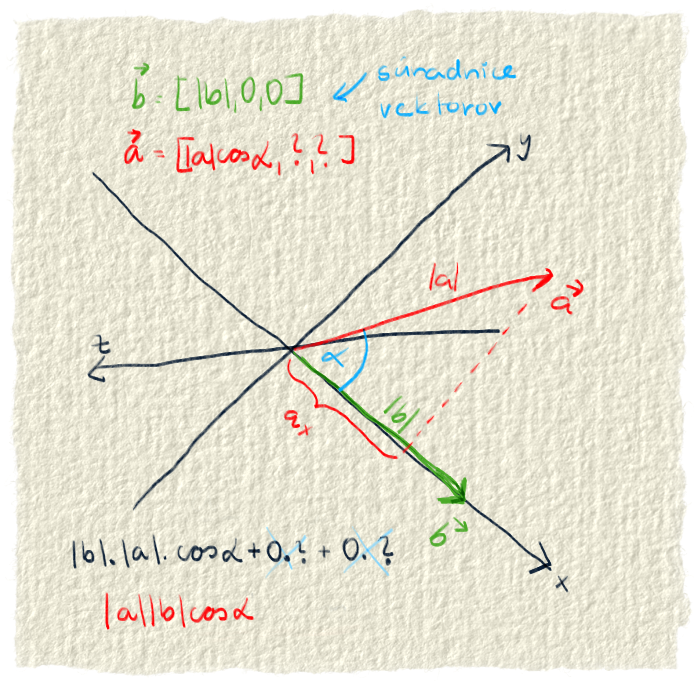 b⃗ = [|b|,0,0]
súradnice
vektorov
a⃗ = [|a|cosα,?,?]
y
|a|
a⃗
z
α
|b|
aₓ
b⃗
x
|b|.|a|.cosα+0.?+0.?
|a||b|cosα